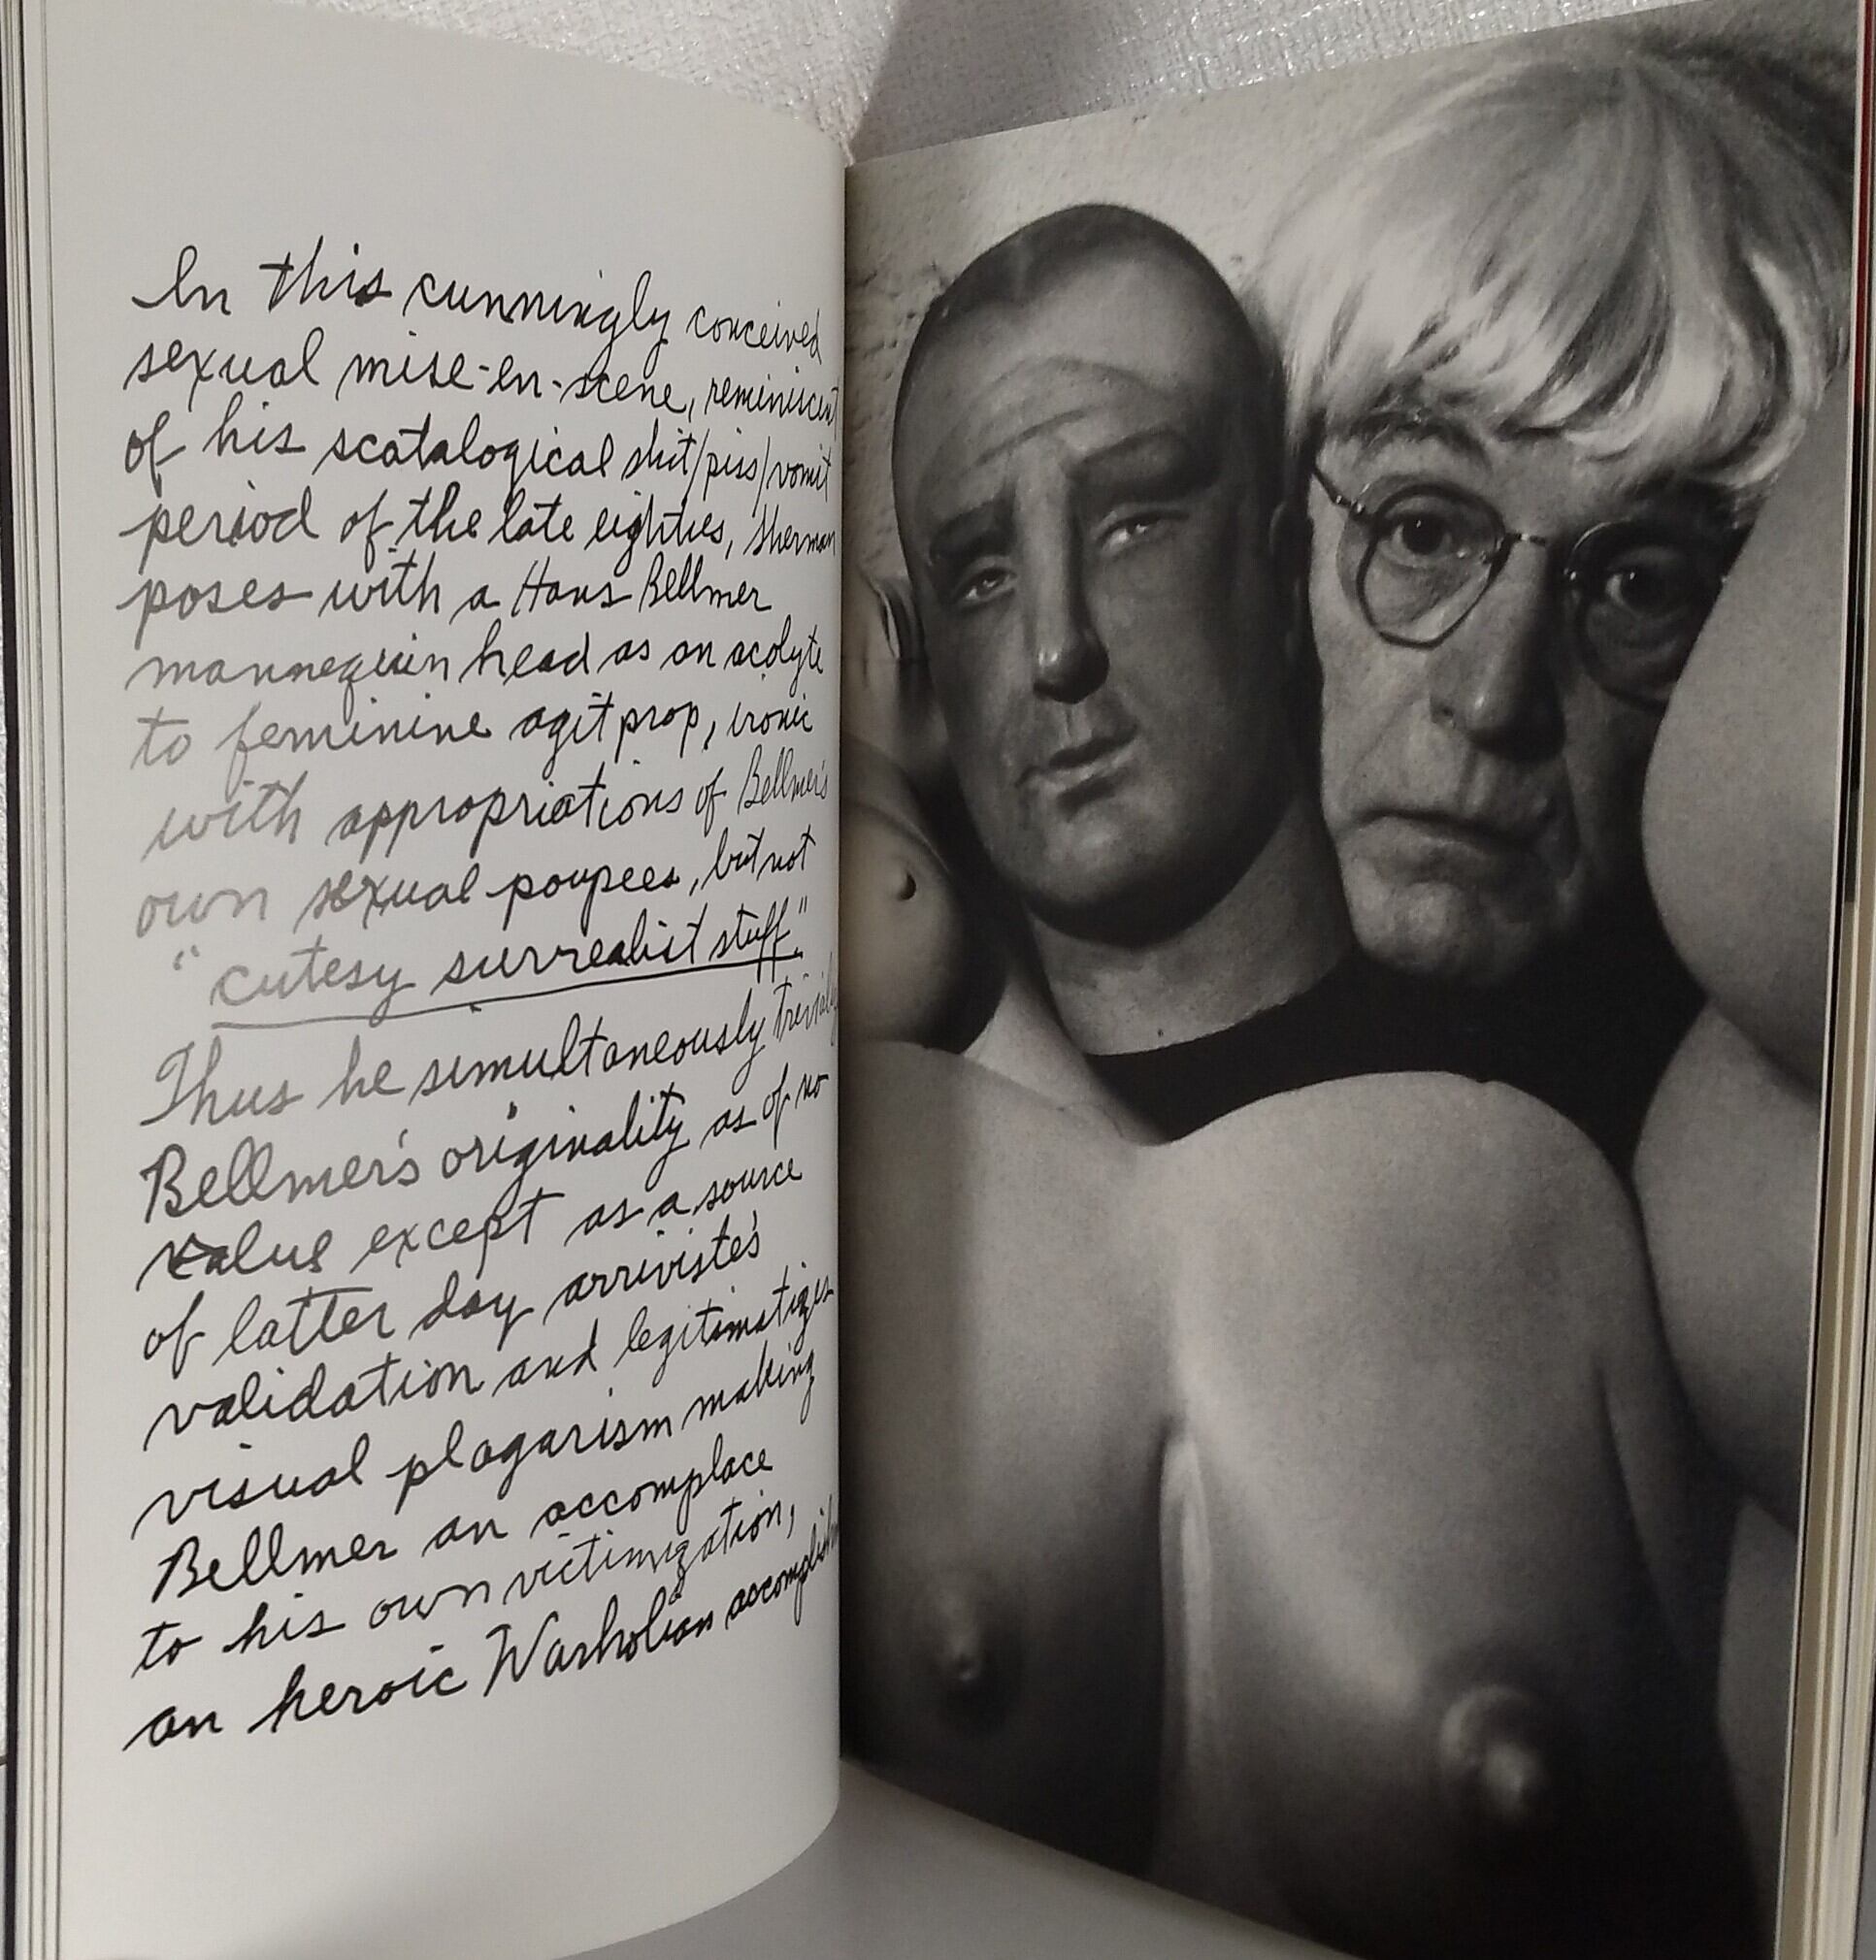 In this cunningly conceived
sexual mise-en-scene, reminiscent
of his scatalogical shit/piss/vomit
period of the late eighties, Sherman
poses with a Hans Bellmer
mannequin head as an acolyte
to feminine agit prop, ironic
with appropriations of Bellmer's
own sexual poupees, but not
"cutesy surrealist stuff."
Thus he simultaneously
Bellmer's originality as of no
value except as a source
of latter day arriviste's
validation and legitimatizes
visual plagarism making
Bellmer an accomplace
to his own victimization,
an heroic Warholian